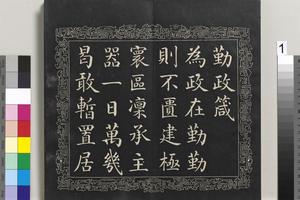 勤政箴
為政在勤勤
則不匱建極
寰區凜承主
器一日萬幾
曷敢暫置居
1